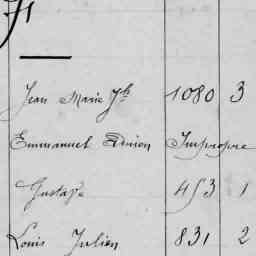 Jean Marie Jh 1080 3
Emmanuel Impropre
Gustave 453 1
Louis Julien 831 2